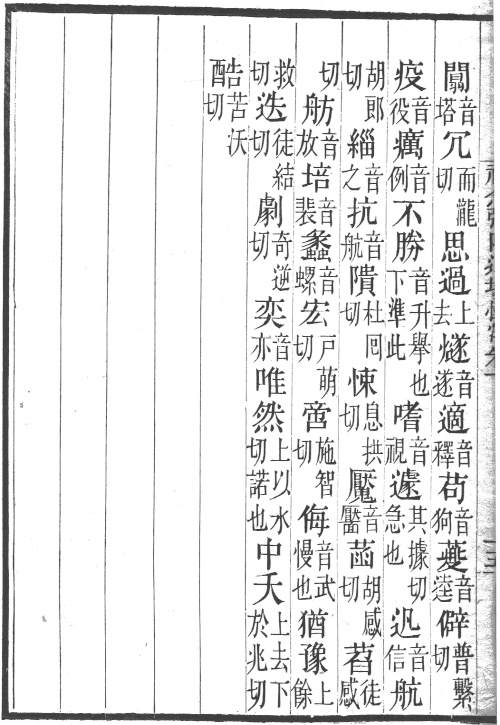 闒音塔冗而瀧切思過上去燧音遂適音釋苟音狗蘷音逵僻普繫切
疫音役癘音例不勝音升舉也下準此嗜音視遽其據切急也迅音信航
胡郎切緇音之抗音航隤杜囘切悚息拱切魘音黶菡胡感切萏徒感
切舫音放培音裴蠡音螺宏戶萌切啻施智切侮音武慢也猶豫上餘
救切迭徒結切劇奇逆切奕音亦唯然上以水切諾也中夭上去下於兆切
酷告苦沃切